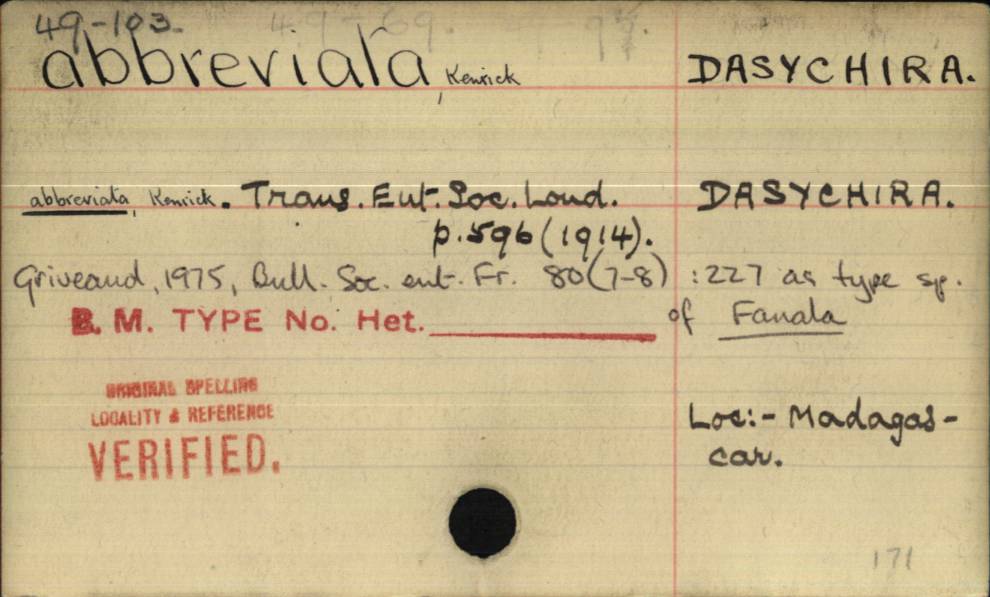 49-103. 49-69. 97.
abbreviata, Kenrick DASYCHIRA.
abbreviata, Kenrick. Trans. Ent. Soc. Lond. DASYCHIRA.
p. 596 (1914).
Griveaud, 1975, Bull. Soc. ent. Fr. 80(7-8) : 227 as type sp.
B. M. TYPE No. Het. of Fanala
ORIGINAL SPELLING
LOCALITY & REFERENCE
VERIFIED.
Loc:- Madagas-
car.
171